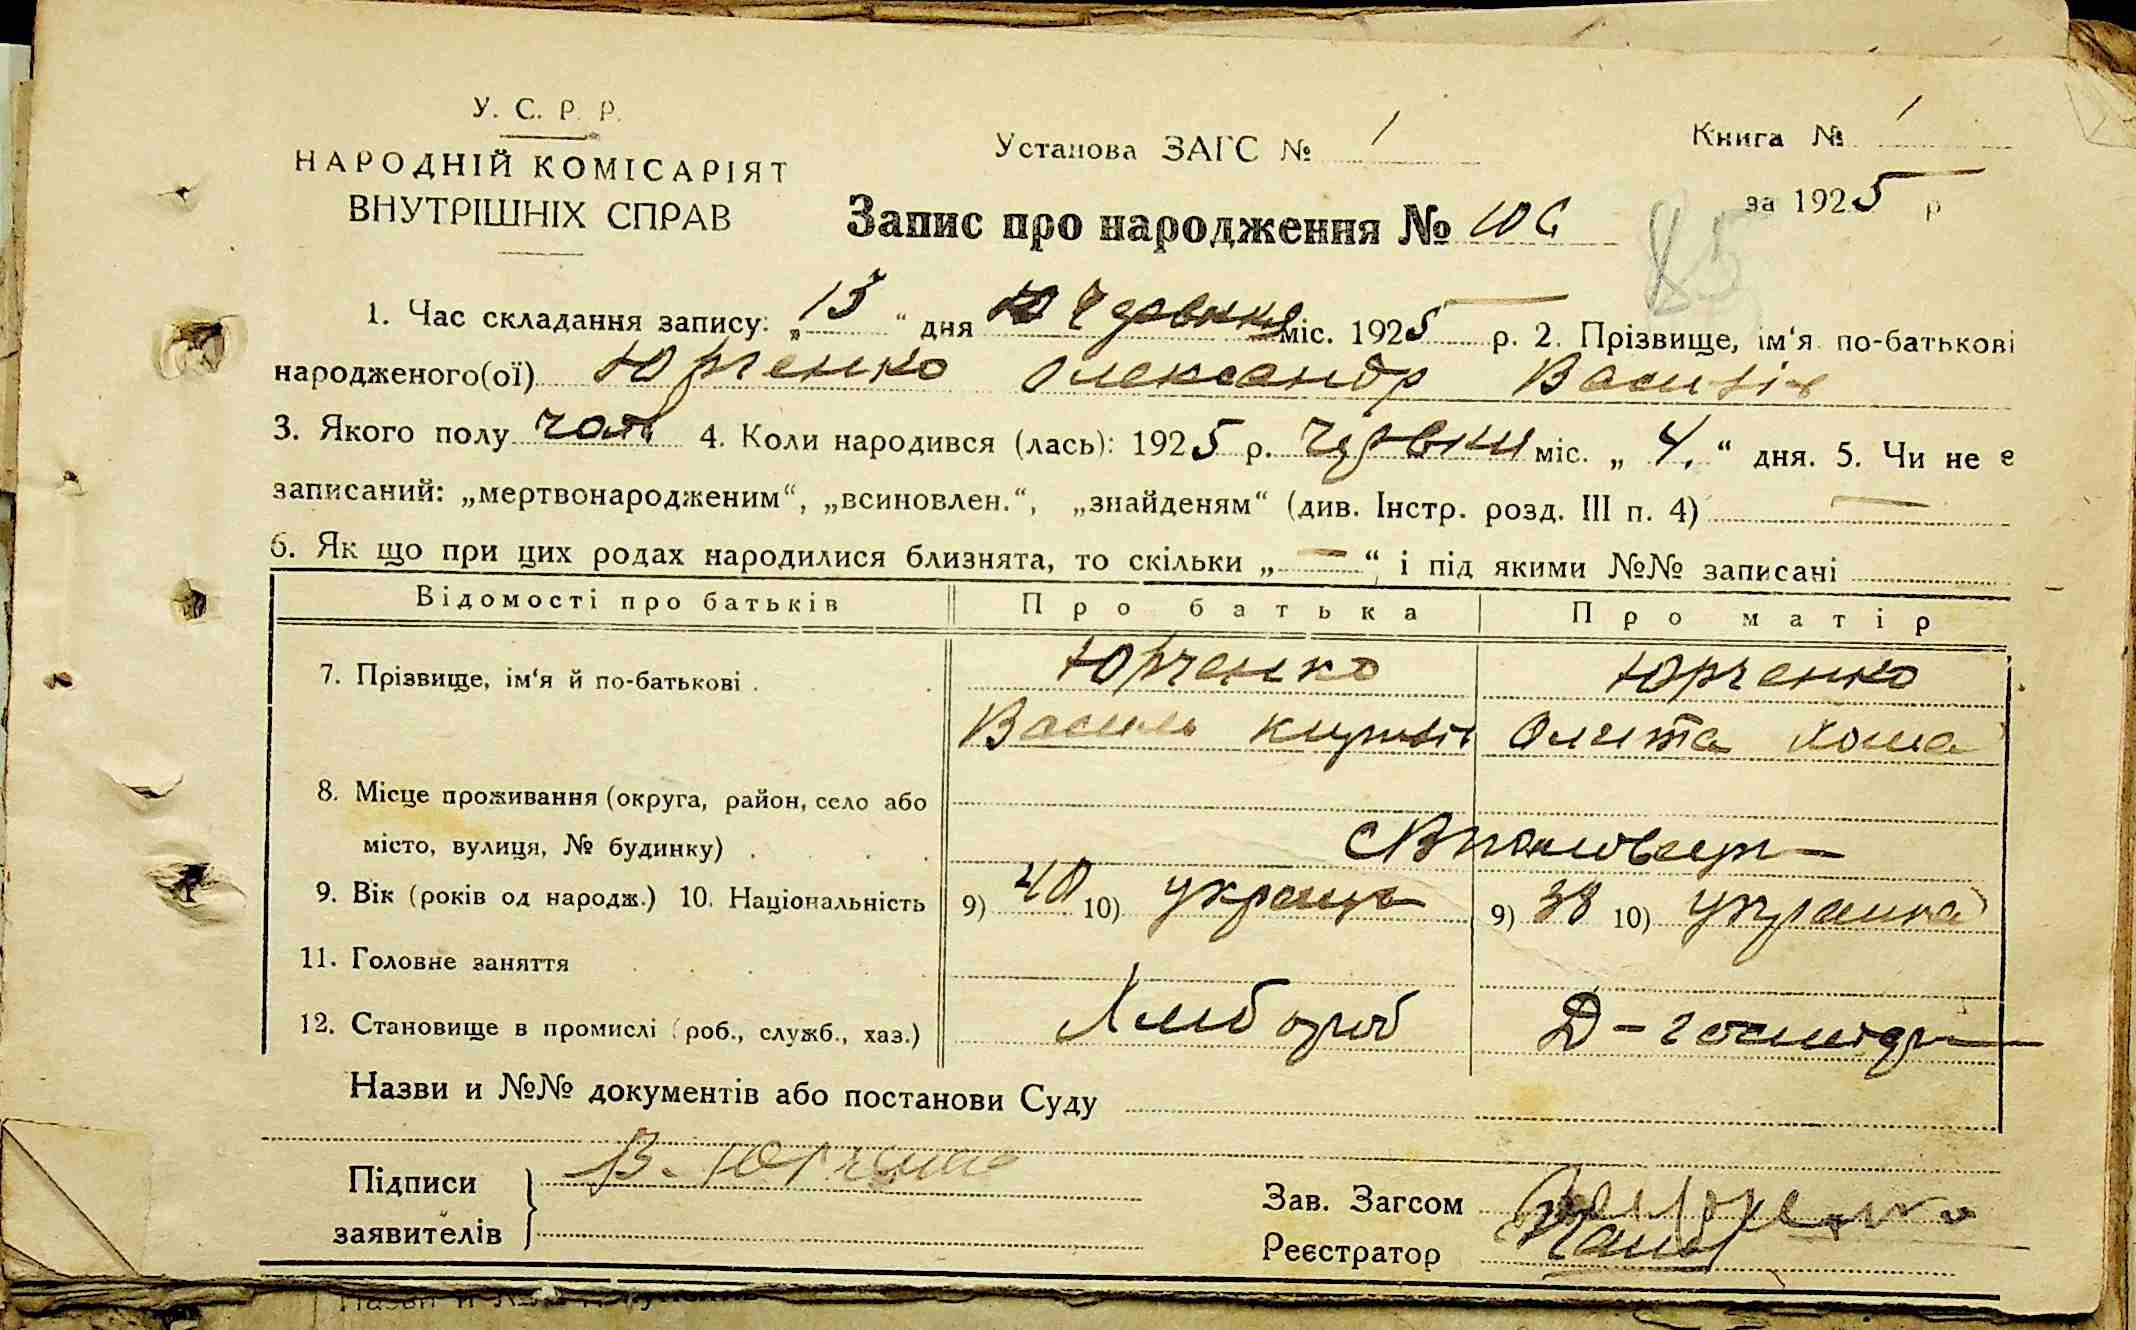 У. С. Р. Р.
НАРОДНІЙ КОМІСАРІЯТ
ВНУТРІШНІХ СПРАВ
Установа ЗАГС № 1
Книга № 1
за 1925 р
Запис про народження № 106
85
1. Час складання запису: „13“ дня Червня міс. 1925 р. 2. Прізвище, ім‘я по-батькові
народженого(ої) Юрченко Олександр Василів
3. Якого полу чол 4. Коли народився (лась): 1925 р. червня міс. „4.“ дня. 5. Чи не є
записаний: „мертвонародженим“, „всиновлен.“, „знайденям“ (див. Інстр. розд. III п. 4) —
6. Як що при цих родах народилися близнята, то скільки „—“, і під якими №№ записані
Відомості про батьків Про батька Про матір
7. Прізвище, ім‘я й по-батькові . Юрченко Юрченко
Василь Олита Хома
8. Місце проживання (округа, район, село або
місто, вулиця, № будинку) .
9. Вік (років од народж.) 10. Національність 9) 40 10) україн 9) 38 10) українка
11. Головне заняття
12. Становище в промислі (роб., служб., хаз.) Хлібороб Д-господр
Назви и №№ документів або постанови Суду
Підписи
заявителів
В. Юрченко
Зав. Загсом
Реєстратор